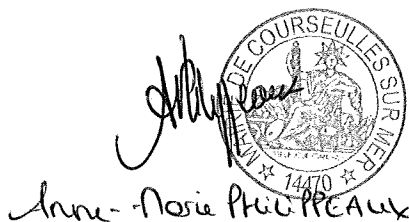 MAIRIE DE COURSEULLES SUR MER
14470
Anne-Marie PHILIPPEAUX